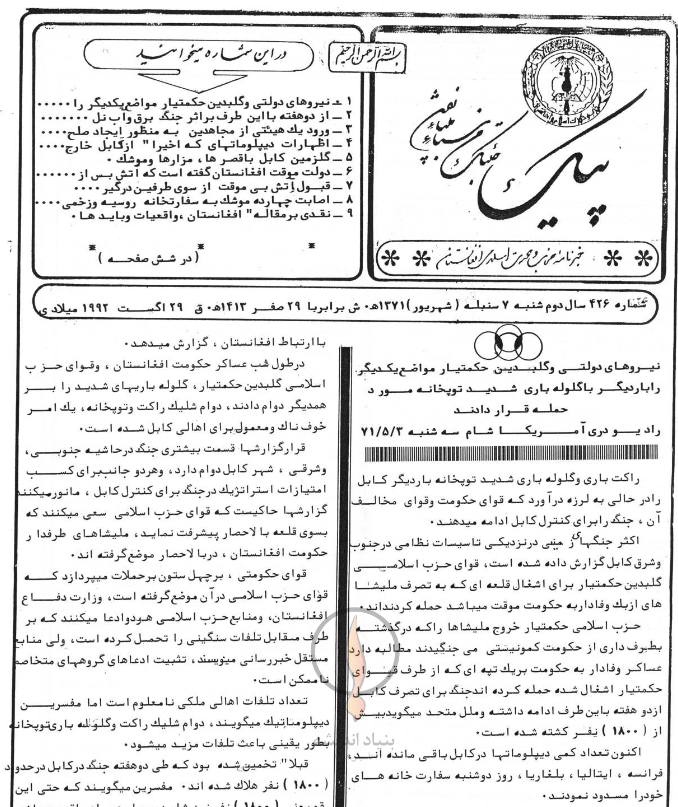 بسم الله الرحمن الرحیم
پیک
خبرنامهٔ حزب وحدت اسلامی افغانستان
در این شماره میخوانید
۱ ـ نیروهای دولتی وگلبدین حکمتیار مواضع یکدیگر را ۰۰۰۰۰
۲ ـ از دوهفته بااین طرف براثر جنگ برق وآب نل ۰۰۰۰۰۰۰
۳ ـ ورود یك هیئتی از مجاهدین به منظور ایجاد صلح ۰۰۰۰
۴ ـ اظهارات دیپلوماتهای که اخیرا" ازکابل خارج ۰۰۰۰
۵ ـ گلزمین کابل باقصر ها ، مزارها وموشك ۰
۶ ـ دولت موقت افغانستان گفته است که آتش بس از ۰۰۰۰۰۰
۷ ـ قبول آتش بی موقت از سوی طرفین درگیر ۰۰۰۰
۸ ـ اصابت چهارده موشك به سفارتخانه روسیه وزخمی ۰۰۰۰
۹ ـ نقدی برمقاله" افغانستان ،واقعیات وباید ها ۰
( در شش صفحــه )
شماره ۴۲۶ سال دوم شنبه ۷ سنبله ( شهریور ) ۱۳۷۱هـ۰ ش برابربا ۲۹ صفر ۱۴۱۳هـ۰ق ۲۹ اگست ۱۹۹۲ میلادی
نیروهای دولتی وگلبدین حکمتیار مواضع یکدیگر
راباردیگر باگلوله باری شدید توپخانه مورد
حمله قرار دادند
رادیو دری آمریکا شام سه شنبه ۷۱/۵/۳
راکت باری وگلوله باری شدید توپخانه باردیگر کابل
رادر حالی به لرزه درآورد که قوای حکومت وقوای مخالف
آن ، جنگ رابرای کنترل کابل ادامه میدهند۰
اکثر جنگهای زمینی درنزدیکی تاسیسات نظامی درجنوب
وشرق کابل گزارش داده شده است، قوای حزب اسلامی
گلبدین حکمتیار برای اشغال قلعه ای که به تصرف ملیشا
های ازبك وفاداربه حکومت موقت میباشد حمله کردنداند۰
حزب اسلامی حکمتیار خروج ملیشاها راکه درگذشته
بطرف داری از حکومت کمونیستی می جنگیدند مطالبه دارد
عساکر وفادار به حکومت بریك تپه ای که از طرف قوای
حکمتیار اشغال شده حمله کرده اندجنگ برای تصرف کابل
ازدو هفته بااین طرف ادامه داشته وملل متحد میگویدبیش
از ( ۱۸۰۰ ) نفر کشته شده است۰
اکنون تعداد کمی دیپلوماتها درکابل باقی مانده اند،
فرانسه ، ایتالیا ، بلغاریا ، روز دوشنبه سفارت خانه های
خودرا مسدود نمودند۰
باارتباط افغانستان ، گزارش میدهد۰
درطول شب عساکر حکومت افغانستان ، وقوای حزب
اسلامی گلبدین حکمتیار، گلوله باریهای شدید را بر
همدیگر دوام دادند، دوام شلیك راکت وتوپخانه، یك امر
خوف ناك ومعمول برای اهالی کابل شده است۰
قرارگزارشها قسمت بیشتری جنگ درحاشیه جنوبی ،
وشرقی ، شهر کابل دوام دارد، وهردو جانب برای کسب
امتیازات استراتژیك درجنگ برای کنترل کابل ، مانورمیکنند
گزارشها حاکیست که قوای حزب اسلامی سعی میکنند که
بسوی قلعه با لاحصار پیشرفت نماید، ملیشاهای طرفدار
حکومت افغانستان ، دربالا حصار موضع گرفته اند۰
قوای حکومتی ، برچهل ستون برحملات میپردازد که
قوای حزب اسلامی درآن موضع گرفته است، وزارت دفاع
افغانستان، ومنابع حزب اسلامی هردوادعا میکنند که بر
طرف مقابل تلفات سنگینی را تحمیل کرده است، ولی منابع
مستقل خبررسانی مینویسند، تثبیت ادعاهای گروههای متخاصم
ناممکن است۰
تعداد تلفات اهالی ملکی نامعلوم است اما مفسرین
دیپلوماتیك میگویند، دوام شلیك راکت وگلوله باری توپخانه
بطور یقینی باعث تلفات مزید میشود۰
قبلا" تخمین شده بود که طی دوهفته جنگ درکابل درحدود
( ۱۸۰۰ ) نفر هلاك شده اند۰ مفسرین میگویند که حتی این
بنیاد اندیشه